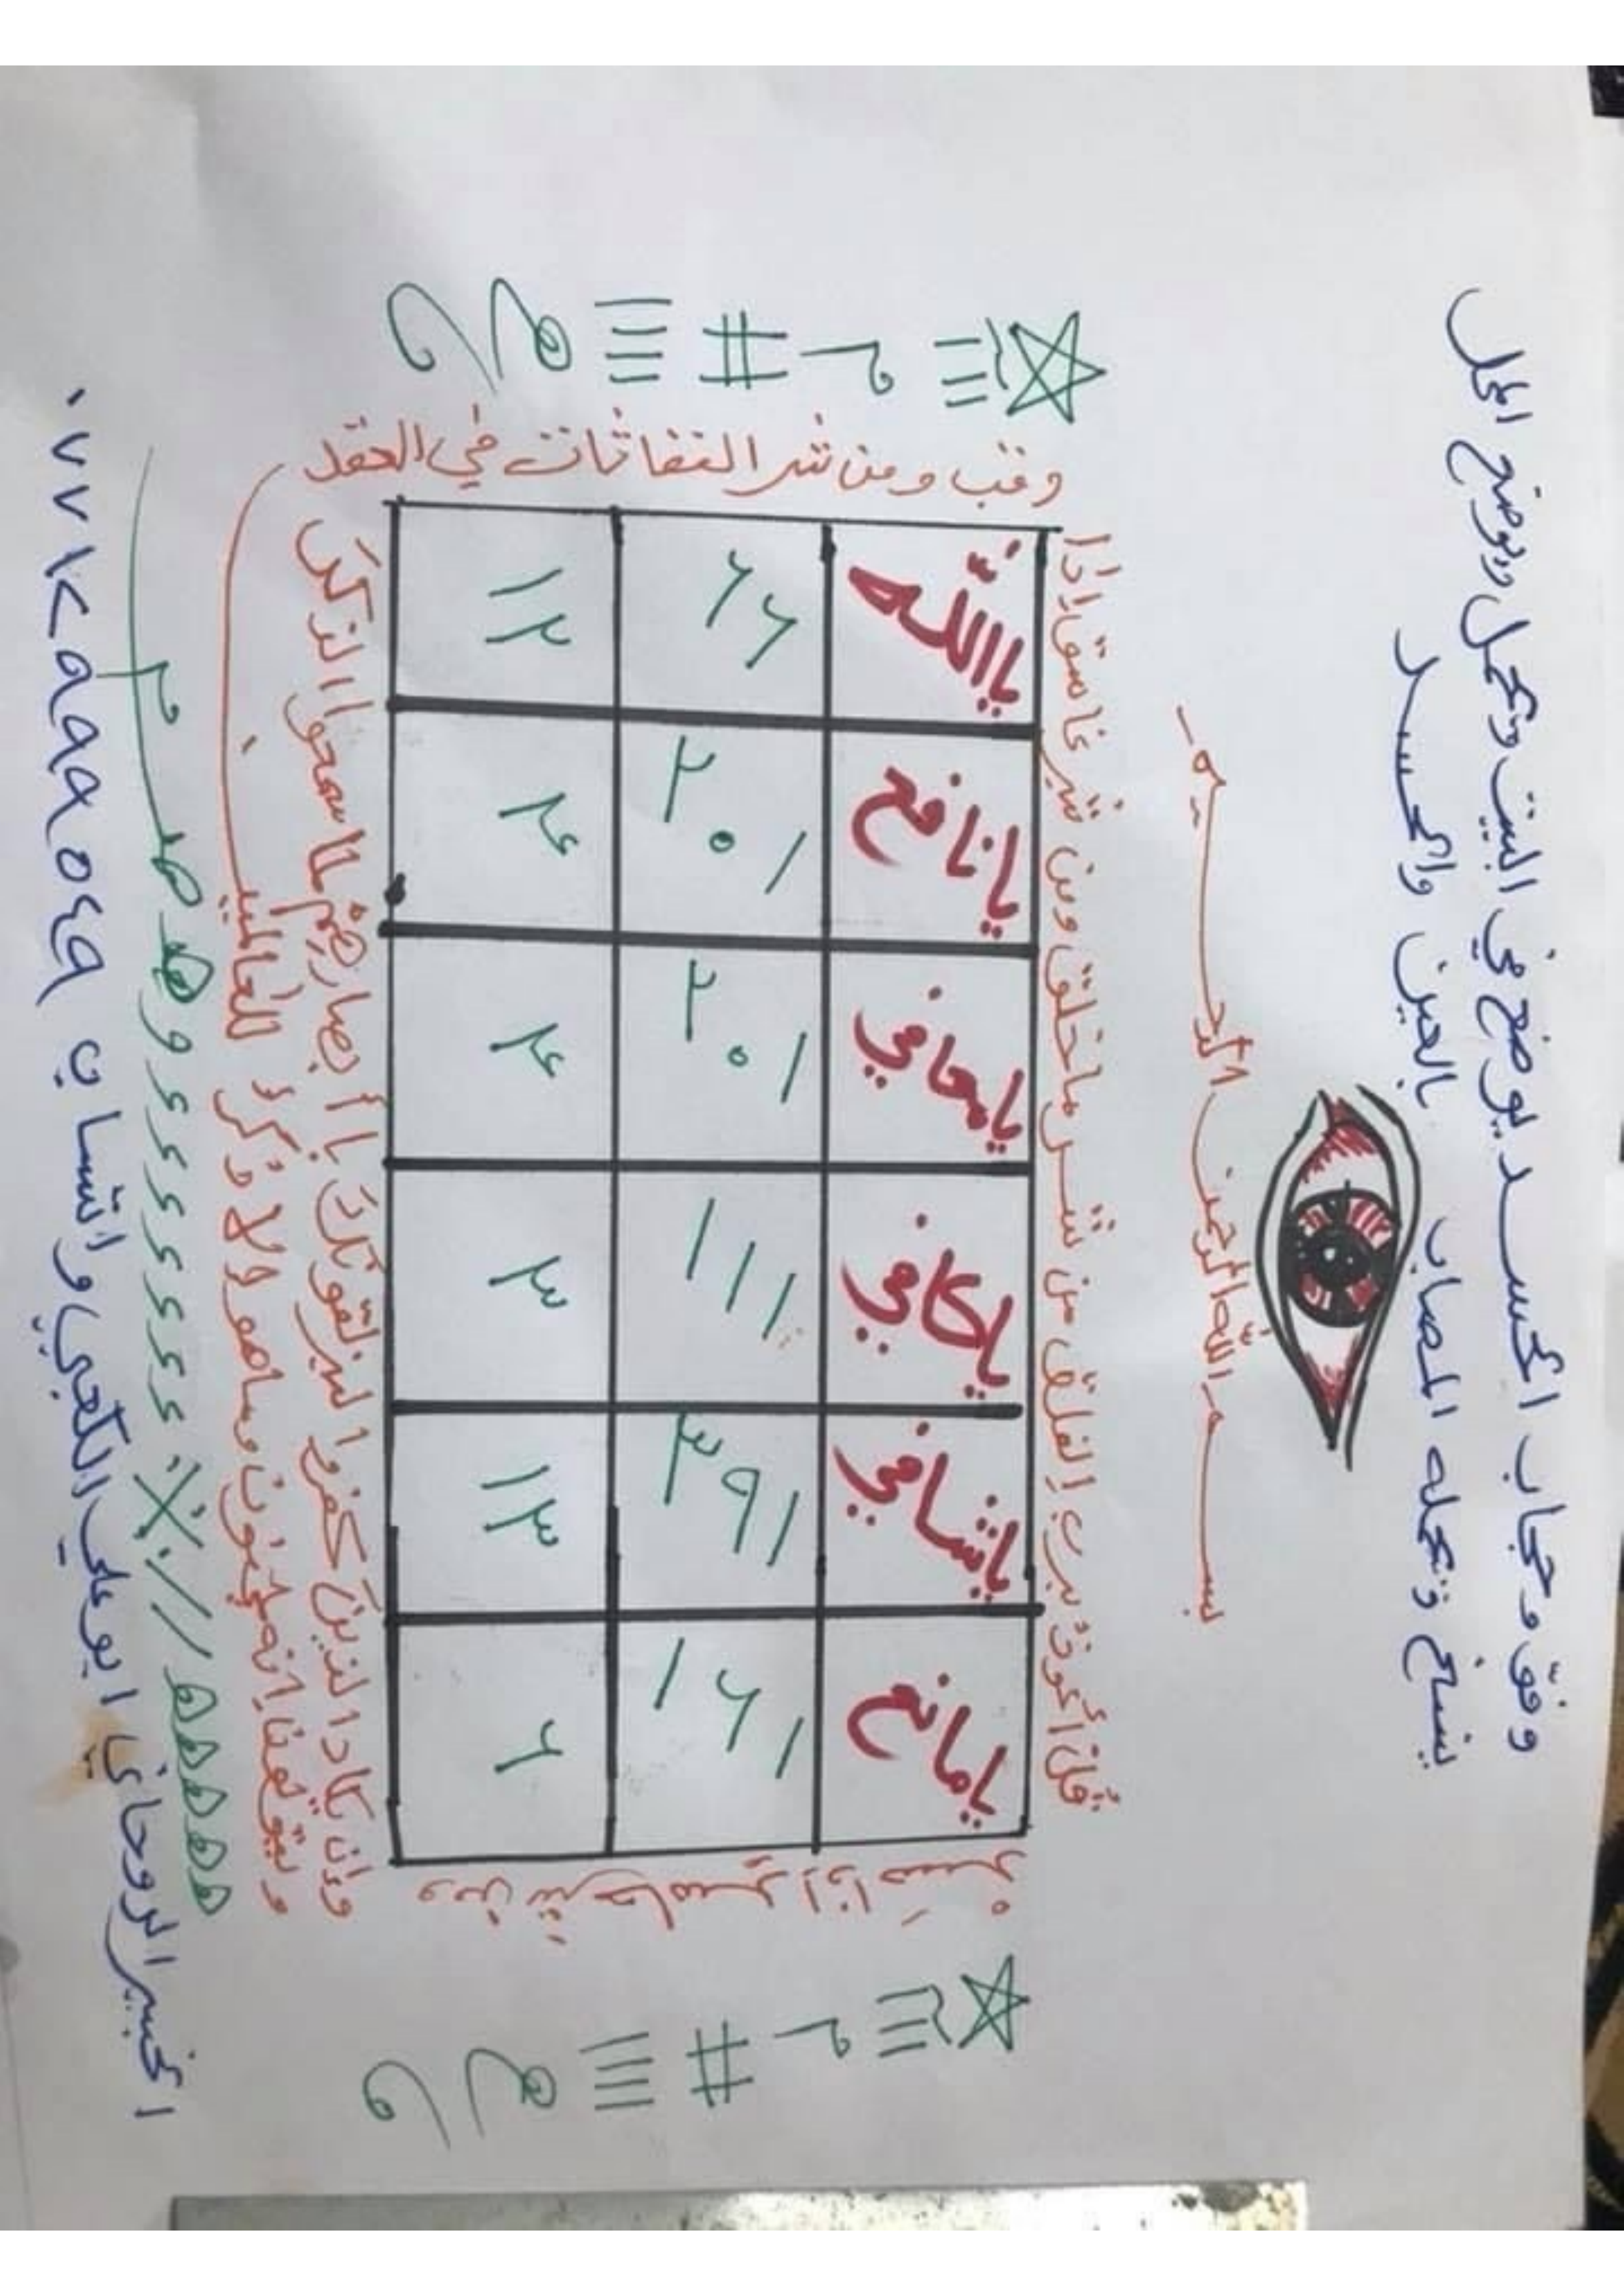 وفق وحجاب الحسد يوضع في البيت وتحمل ويوضع المحل
ينسخ وتحمله المصاب بالعين والحسد
بسم الله الرحمن الرحيم
قل أعوذ برب الفلق من شر ما خلق ومن شر غاسق اذا
وقب ومن شر النفاثات في العقد
ومن شر حاسد اذا حسد
يامانع ياشافي ياكافي يامعافي يانافع ياالله
١٦١ ٣٩١ ١١١ ٢٠١ ٢٠١ ٦٦
١٣ ٣ ١٢
وإن يكاد الذين كفروا ليزلقونك بأبصارهم لما سمعوا الذكر
ويقولون إنه لمجنون وما هو إلا ذكر للعالمين
الخبير الروحاني ابو علي الكعبي واتساب